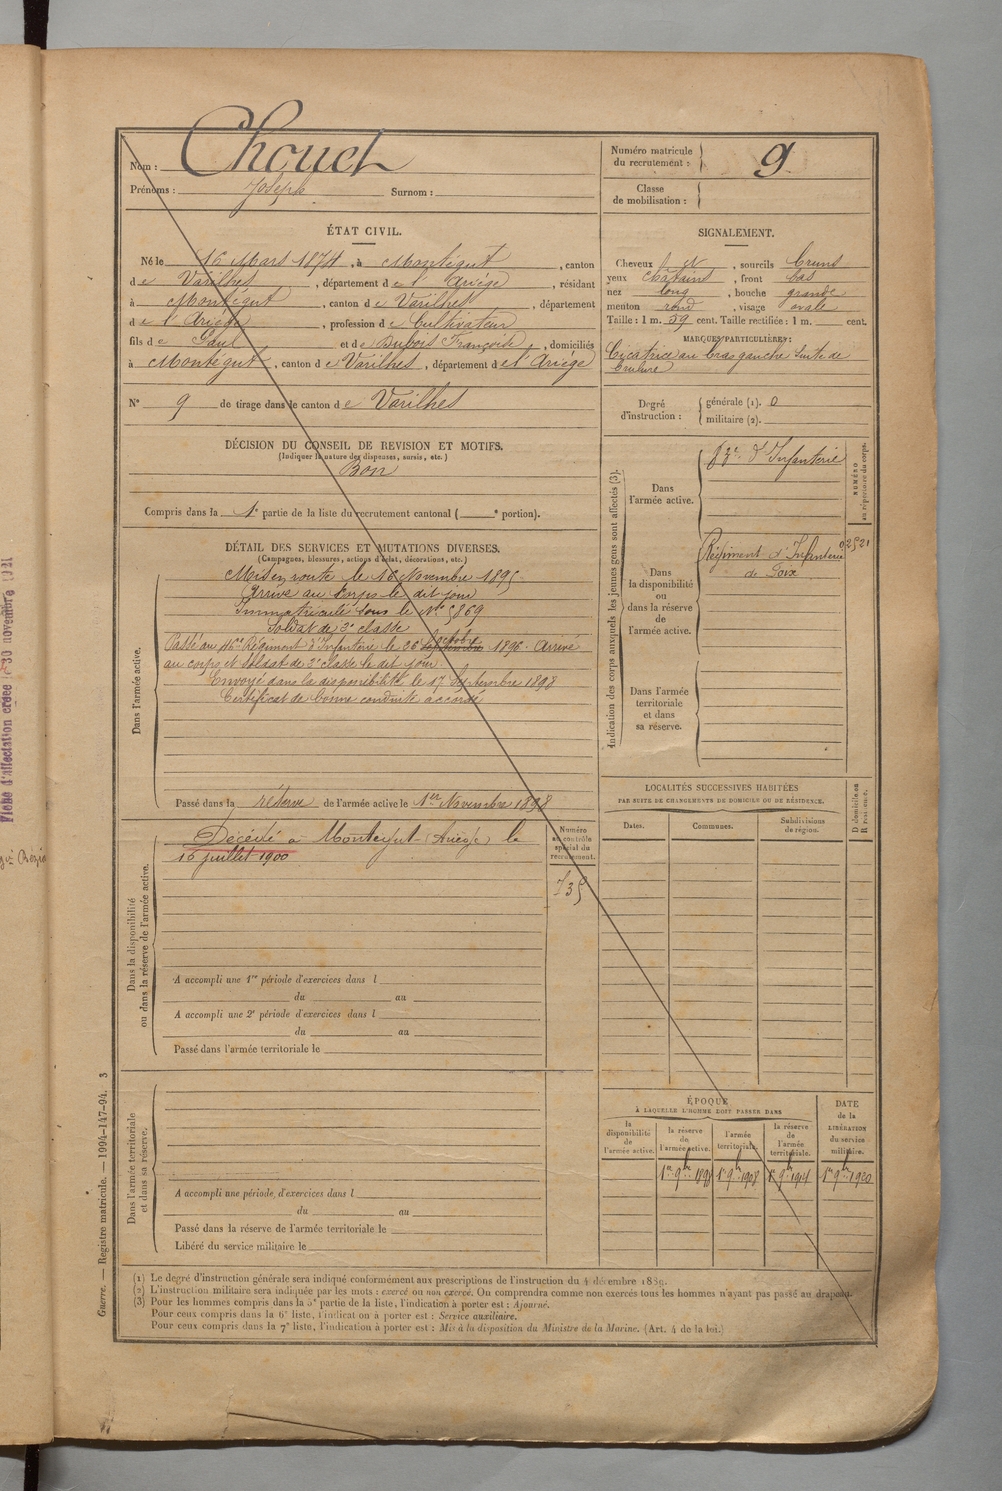 Nom : Chouet
Prénoms : Joseph Surnom :
Numéro matricule du recrutement : 9
Classe de mobilisation :
ÉTAT CIVIL.
Né le 16 Mars 1874, à Montégut, canton
de Varilhes, département de l'Ariège, résidant
à Montégut, canton de Varilhes, département
de l'Ariège, profession de Cultivateur
fils de Paul et de Dubois Françoise, domiciliés
à Montégut, canton de Varilhes, département de l'Ariège
N° 9 de tirage dans le canton de Varilhes
DÉCISION DU CONSEIL DE REVISION ET MOTIFS.
(Indiquer la nature des dispenses, sursis, etc.)
Bon
Compris dans la 1e partie de la liste du recrutement cantonal ( e portion).
DÉTAIL DES SERVICES ET MUTATIONS DIVERSES.
(Campagnes, blessures, actions d'éclat, décorations, etc.)
Dans l'armée active.
Mis en route le 16 Novembre 1895
Arrivé au Corps le dit jour
Immatriculé sous le N° 5869
Soldat de 2e classe
Passé au Régiment d'Infanterie le 26 octobre 1896. Arrivé
au corps et soldat de 2e classe le dit jour
Envoyé dans la disponibilité le 17 Septembre 1898
Certificat de bonne conduite accordé
Passé dans la réserve de l'armée active le 1er Novembre 1898
Dans la disponibilité ou dans la réserve de l'armée active.
Décédé à Montégut (Ariège) le
16 juillet 1900
Numéro au contrôle spécial du recrutement.
735
A accompli une 1re période d'exercices dans l
du au
A accompli une 2e période d'exercices dans l
du au
Passé dans l'armée territoriale le
Dans l'armée territoriale et dans sa réserve.
A accompli une période d'exercices dans l
du au
Passé dans la réserve de l'armée territoriale le
Libéré du service militaire le
SIGNALEMENT.
Cheveux et, sourcils bruns
yeux châtains, front bas
nez long, bouche grande
menton rond, visage ovale
Taille : 1 m. 59 cent. Taille rectifiée : 1 m. cent.
MARQUES PARTICULIÈRES :
Cicatrice au bras gauche suite de
brûlure
Degré d'instruction :
générale (1). 0
militaire (2).
Indication des corps auxquels les jeunes gens sont affectés (3).
NUMÉRO au répertoire du corps.
Dans l'armée active.
d'Infanterie
Dans la disponibilité ou dans la réserve de l'armée active.
Régiment d'Infanterie 02521
de Foix
Dans l'armée territoriale et dans sa réserve.
LOCALITÉS SUCCESSIVES HABITÉES
PAR SUITE DE CHANGEMENTS DE DOMICILE OU DE RÉSIDENCE.
Dates. Communes. Subdivisions de région. D domicile ou R résidence.
ÉPOQUE
À LAQUELLE L'HOMME DOIT PASSER DANS
la disponibilité de l'armée active.
la réserve de l'armée active.
l'armée territoriale.
la réserve de l'armée territoriale.
DATE de la LIBÉRATION du service militaire.
1er 9bre 1898 1er 9bre 1908 1er 9bre 1914 1er 9bre 1920
(1) Le degré d'instruction générale sera indiqué conformément aux prescriptions de l'instruction du 4 décembre 1889.
(2) L'instruction militaire sera indiquée par les mots : exercé ou non exercé. On comprendra comme non exercés tous les hommes n'ayant pas passé au drapeau.
(3) Pour les hommes compris dans la 5e partie de la liste, l'indication à porter est : Ajourné.
Pour ceux compris dans la 6e liste, l'indication à porter est : Service auxiliaire.
Pour ceux compris dans la 7e liste, l'indication à porter est : Mis à la disposition du Ministre de la Marine. (Art. 4 de la loi.)
Guerre. — Registre matricule. — 1994-147-94. 3
Fiche d'affectation créée le 30 novembre 1921